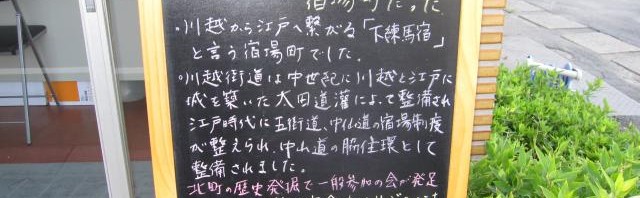 宿場町だった
・川越から江戸へ繋がる「下練馬宿」
と言う宿場町でした.
・川越街道は中世紀に川越と江戸に
城を築いた太田道灌によって整備され
江戸時代に五街道、中仙道の宿場制度
が整えられ、中山道の脇往環として
整備されました。
北町の歴史発掘で一般参加の会が発足